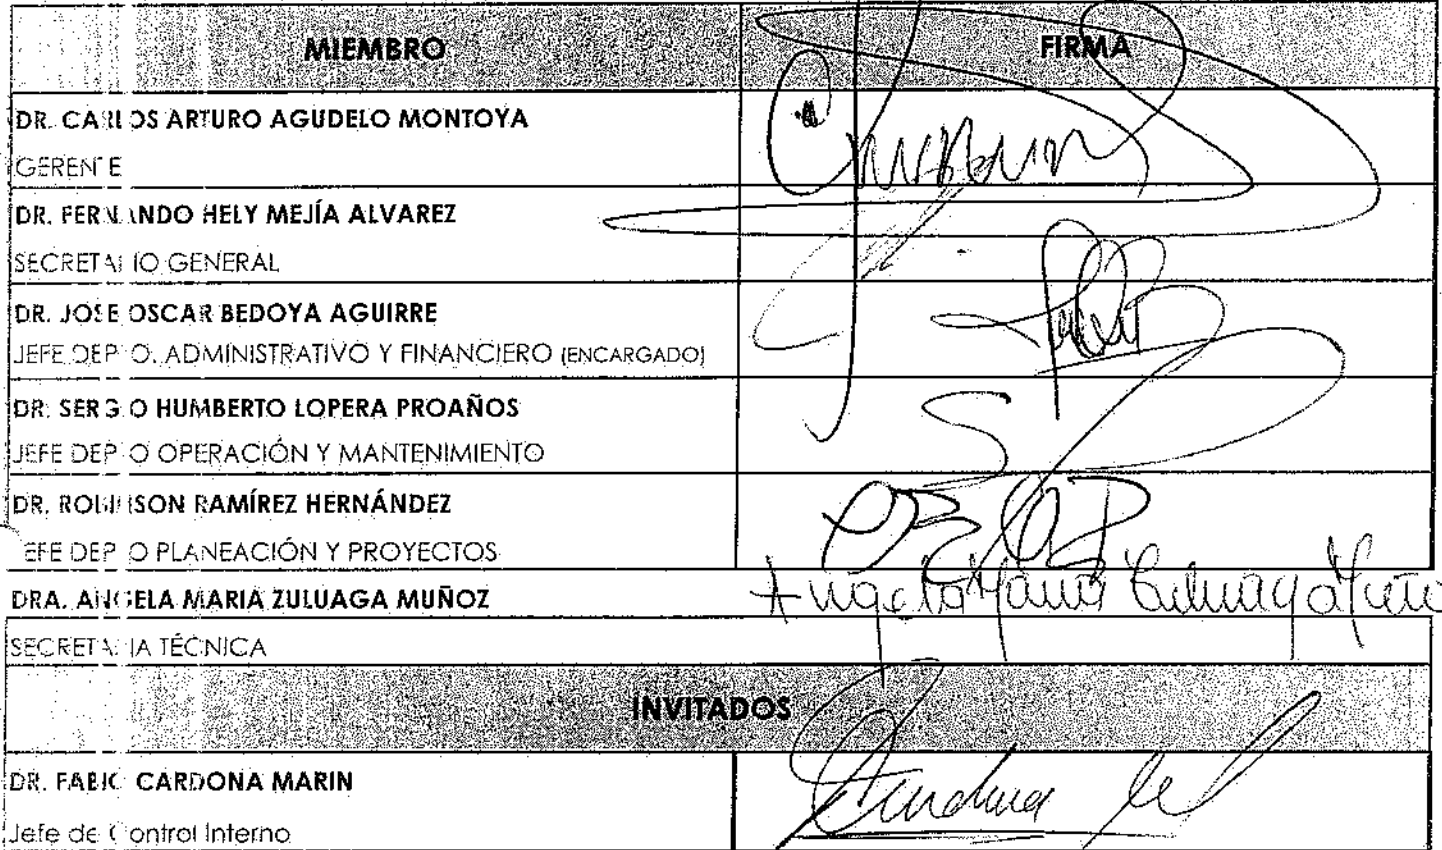 MIEMBRO FIRMA
DR. CARLOS ARTURO AGUDELO MONTOYA
GERENTE
DR. FERNANDO HELY MEJÍA ALVAREZ
SECRETARIO GENERAL
DR. JOSE OSCAR BEDOYA AGUIRRE
JEFE DEPTO. ADMINISTRATIVO Y FINANCIERO (ENCARGADO)
DR. SERGIO HUMBERTO LOPERA PROAÑOS
JEFE DEPTO OPERACIÓN Y MANTENIMIENTO
DR. ROBINSON RAMÍREZ HERNÁNDEZ
JEFE DEPTO PLANEACIÓN Y PROYECTOS
DRA. ANGELA MARIA ZULUAGA MUÑOZ Angela Maria Zuluaga Muño
SECRETARIA TÉCNICA
INVITADOS
DR. FABIO CARDONA MARIN Cardona
Jefe de Control Interno